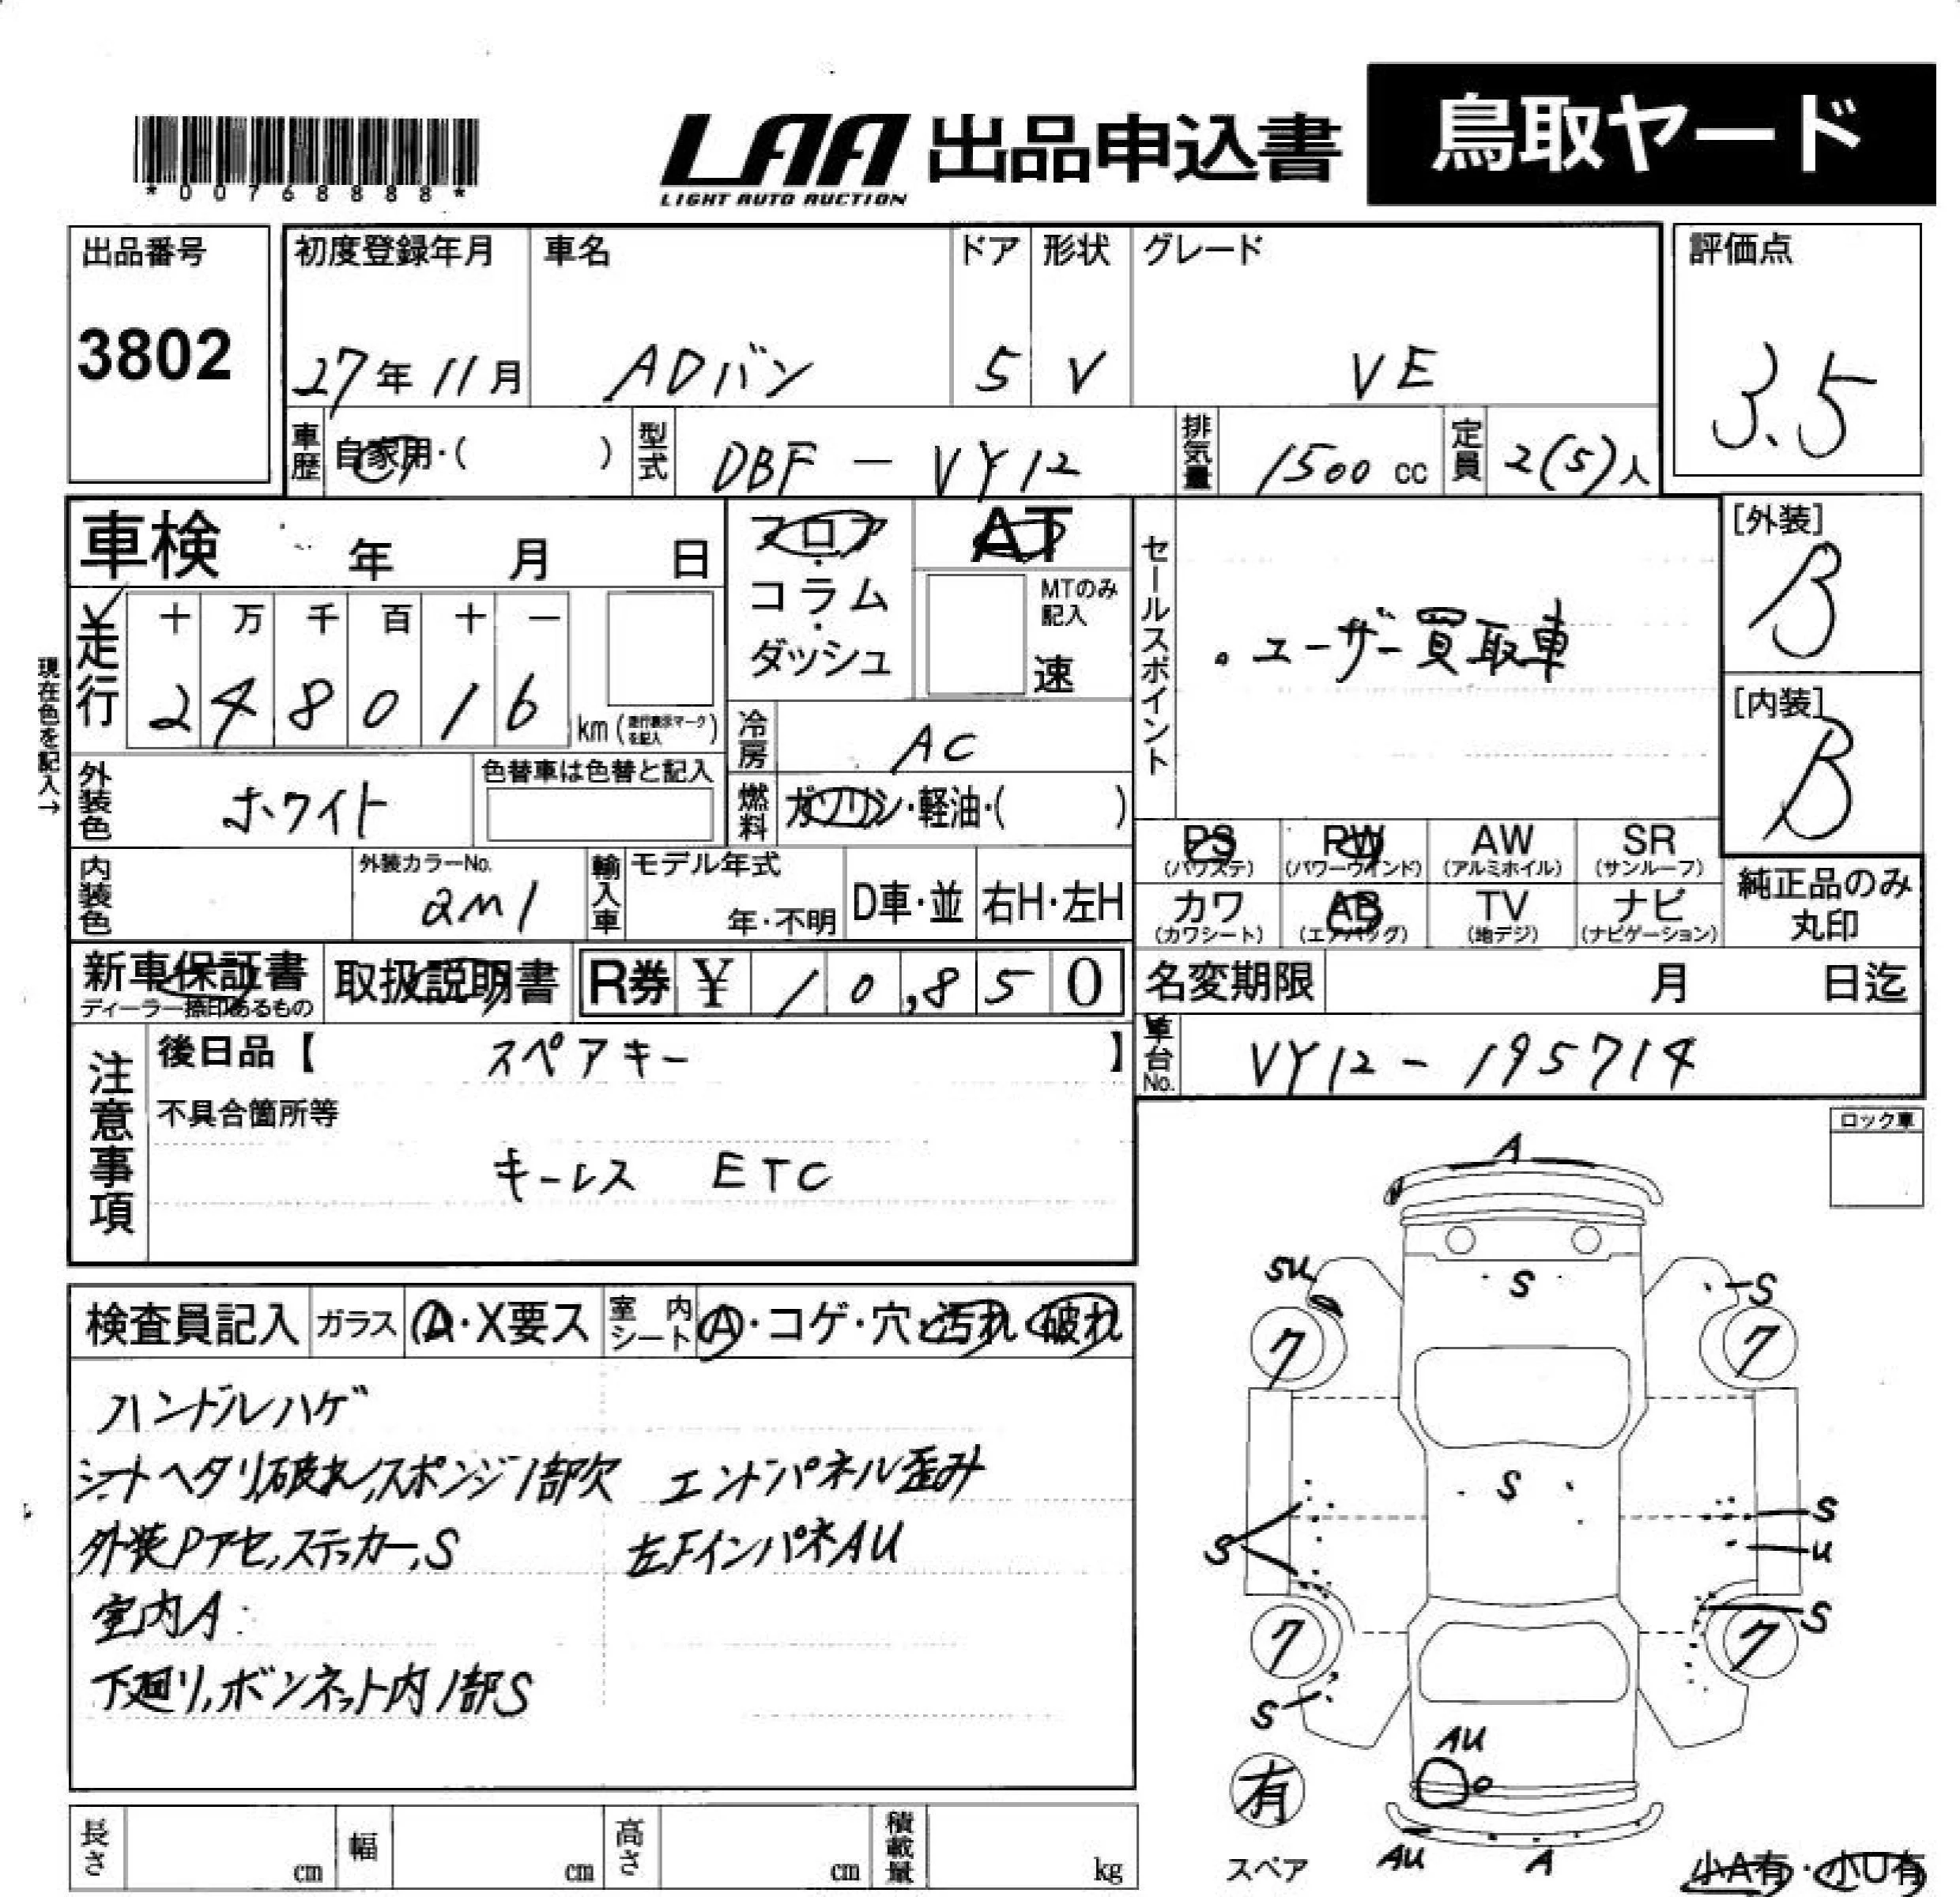 *00768888*
LAA 出品申込書 鳥取ヤード
LIGHT AUTO AUCTION
出品番号 初度登録年月 車名 ドア 形状 グレード 評価点
3802 27年11月 ADバン 5 V VE 3.5
車歴 自家用・( ) 型式 DBF-VY12 排気量 1500cc 定員 2(5)人
車検 年 月 日 フロア AT [外装]
コラム MTのみ記入 B
ダッシュ 速
走行 十 万 千 百 十 一
248016 km (走行表示マークを記入)
現在色を記入→
セールスポイント ・ユーザー買取車
[内装] B
冷房 AC
外装色 ホワイト 色替車は色替と記入
燃料 ガソリン・軽油・( )
PS (パワステ) PW (パワーウインド) AW (アルミホイル) SR (サンルーフ)
カワ (カワシート) AB (エアバッグ) TV (地デジ) ナビ (ナビゲーション)
純正品のみ丸印
内装色 外装カラーNo. 2M1 輸入車 モデル年式 年・不明 D車・並 右H・左H
新車保証書 取扱説明書 R券 ¥ 10,850 名変期限 月 日迄
ディーラー捺印あるもの
車台No. VY12-195714
注意事項 後日品【 スペアキー 】
不具合箇所等
キーレス ETC
ロック車
検査員記入 ガラス A・X要ス 室内シート A・コゲ・穴・汚れ・破れ
ハンドルハゲ
シートヘタリ,破れ,スポンジ1部欠 エンドパネル歪み
外装Pアセ,ステッカー,S 左FインパネAU
室内A
下廻り,ボンネット内1部S
A
SU S S
7 7
S
S S
U
S
7 7
S
AU
有
スペア AU A 小A有・小U有
長さ cm 幅 cm 高さ cm 積載量 kg